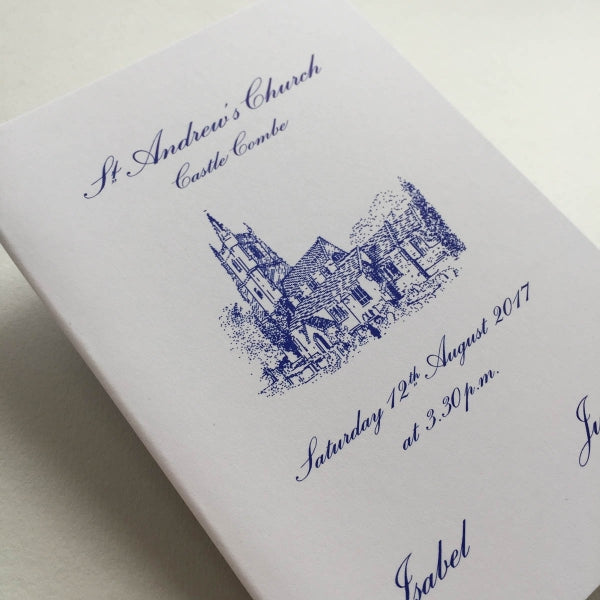 St. Andrew's Church
Castle Combe
Saturday 12th August 2017
at 3.30 p.m.
Isabel